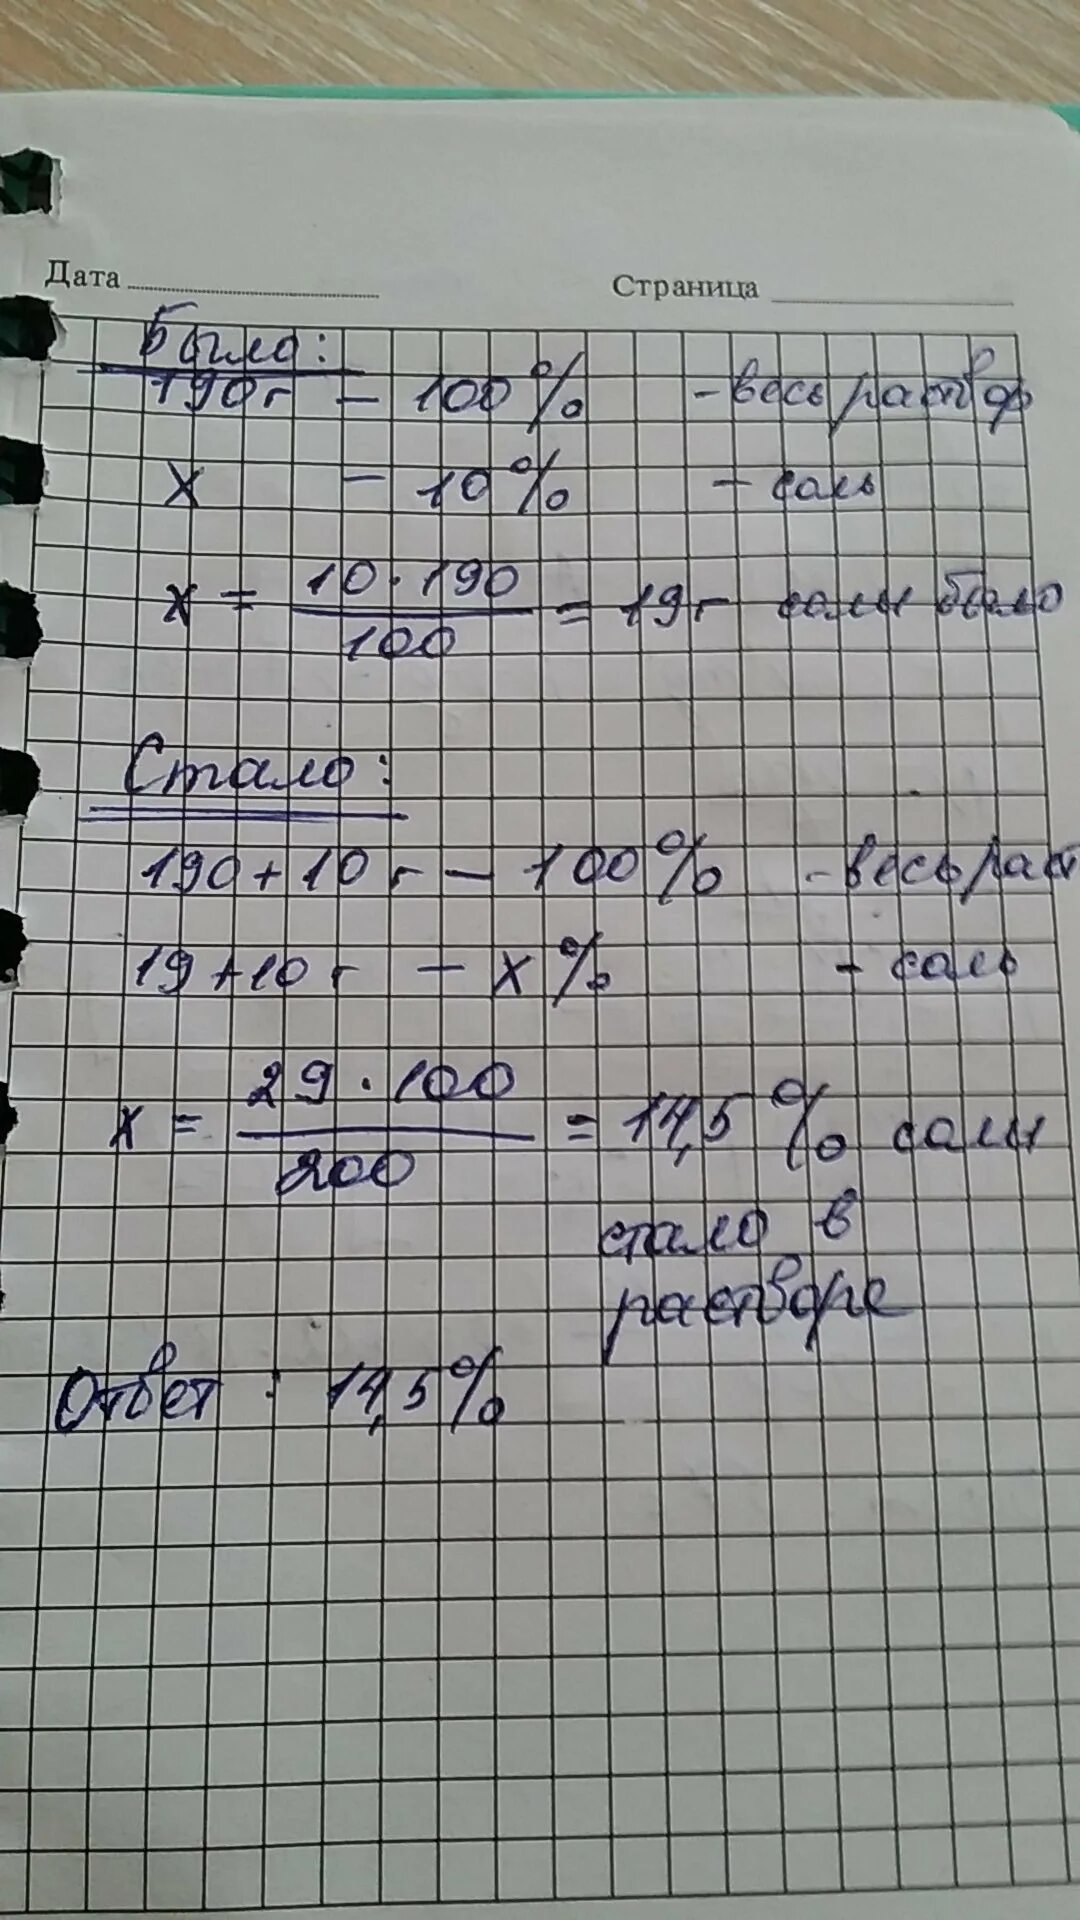 Дата
Страница
Было:
190г — 100% - весь раствор
х — 10% - соль
х = 10·190/100 = 19г соли было
Стало:
190+10г — 100% - весь раст
19+10г — х% - соль
х = 29·100/200 = 14,5% соли
стало в
растворе
Ответ: 14,5%